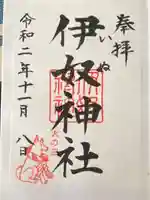 奉拝
伊奴神社
いぬ
令和二年十一月
八日